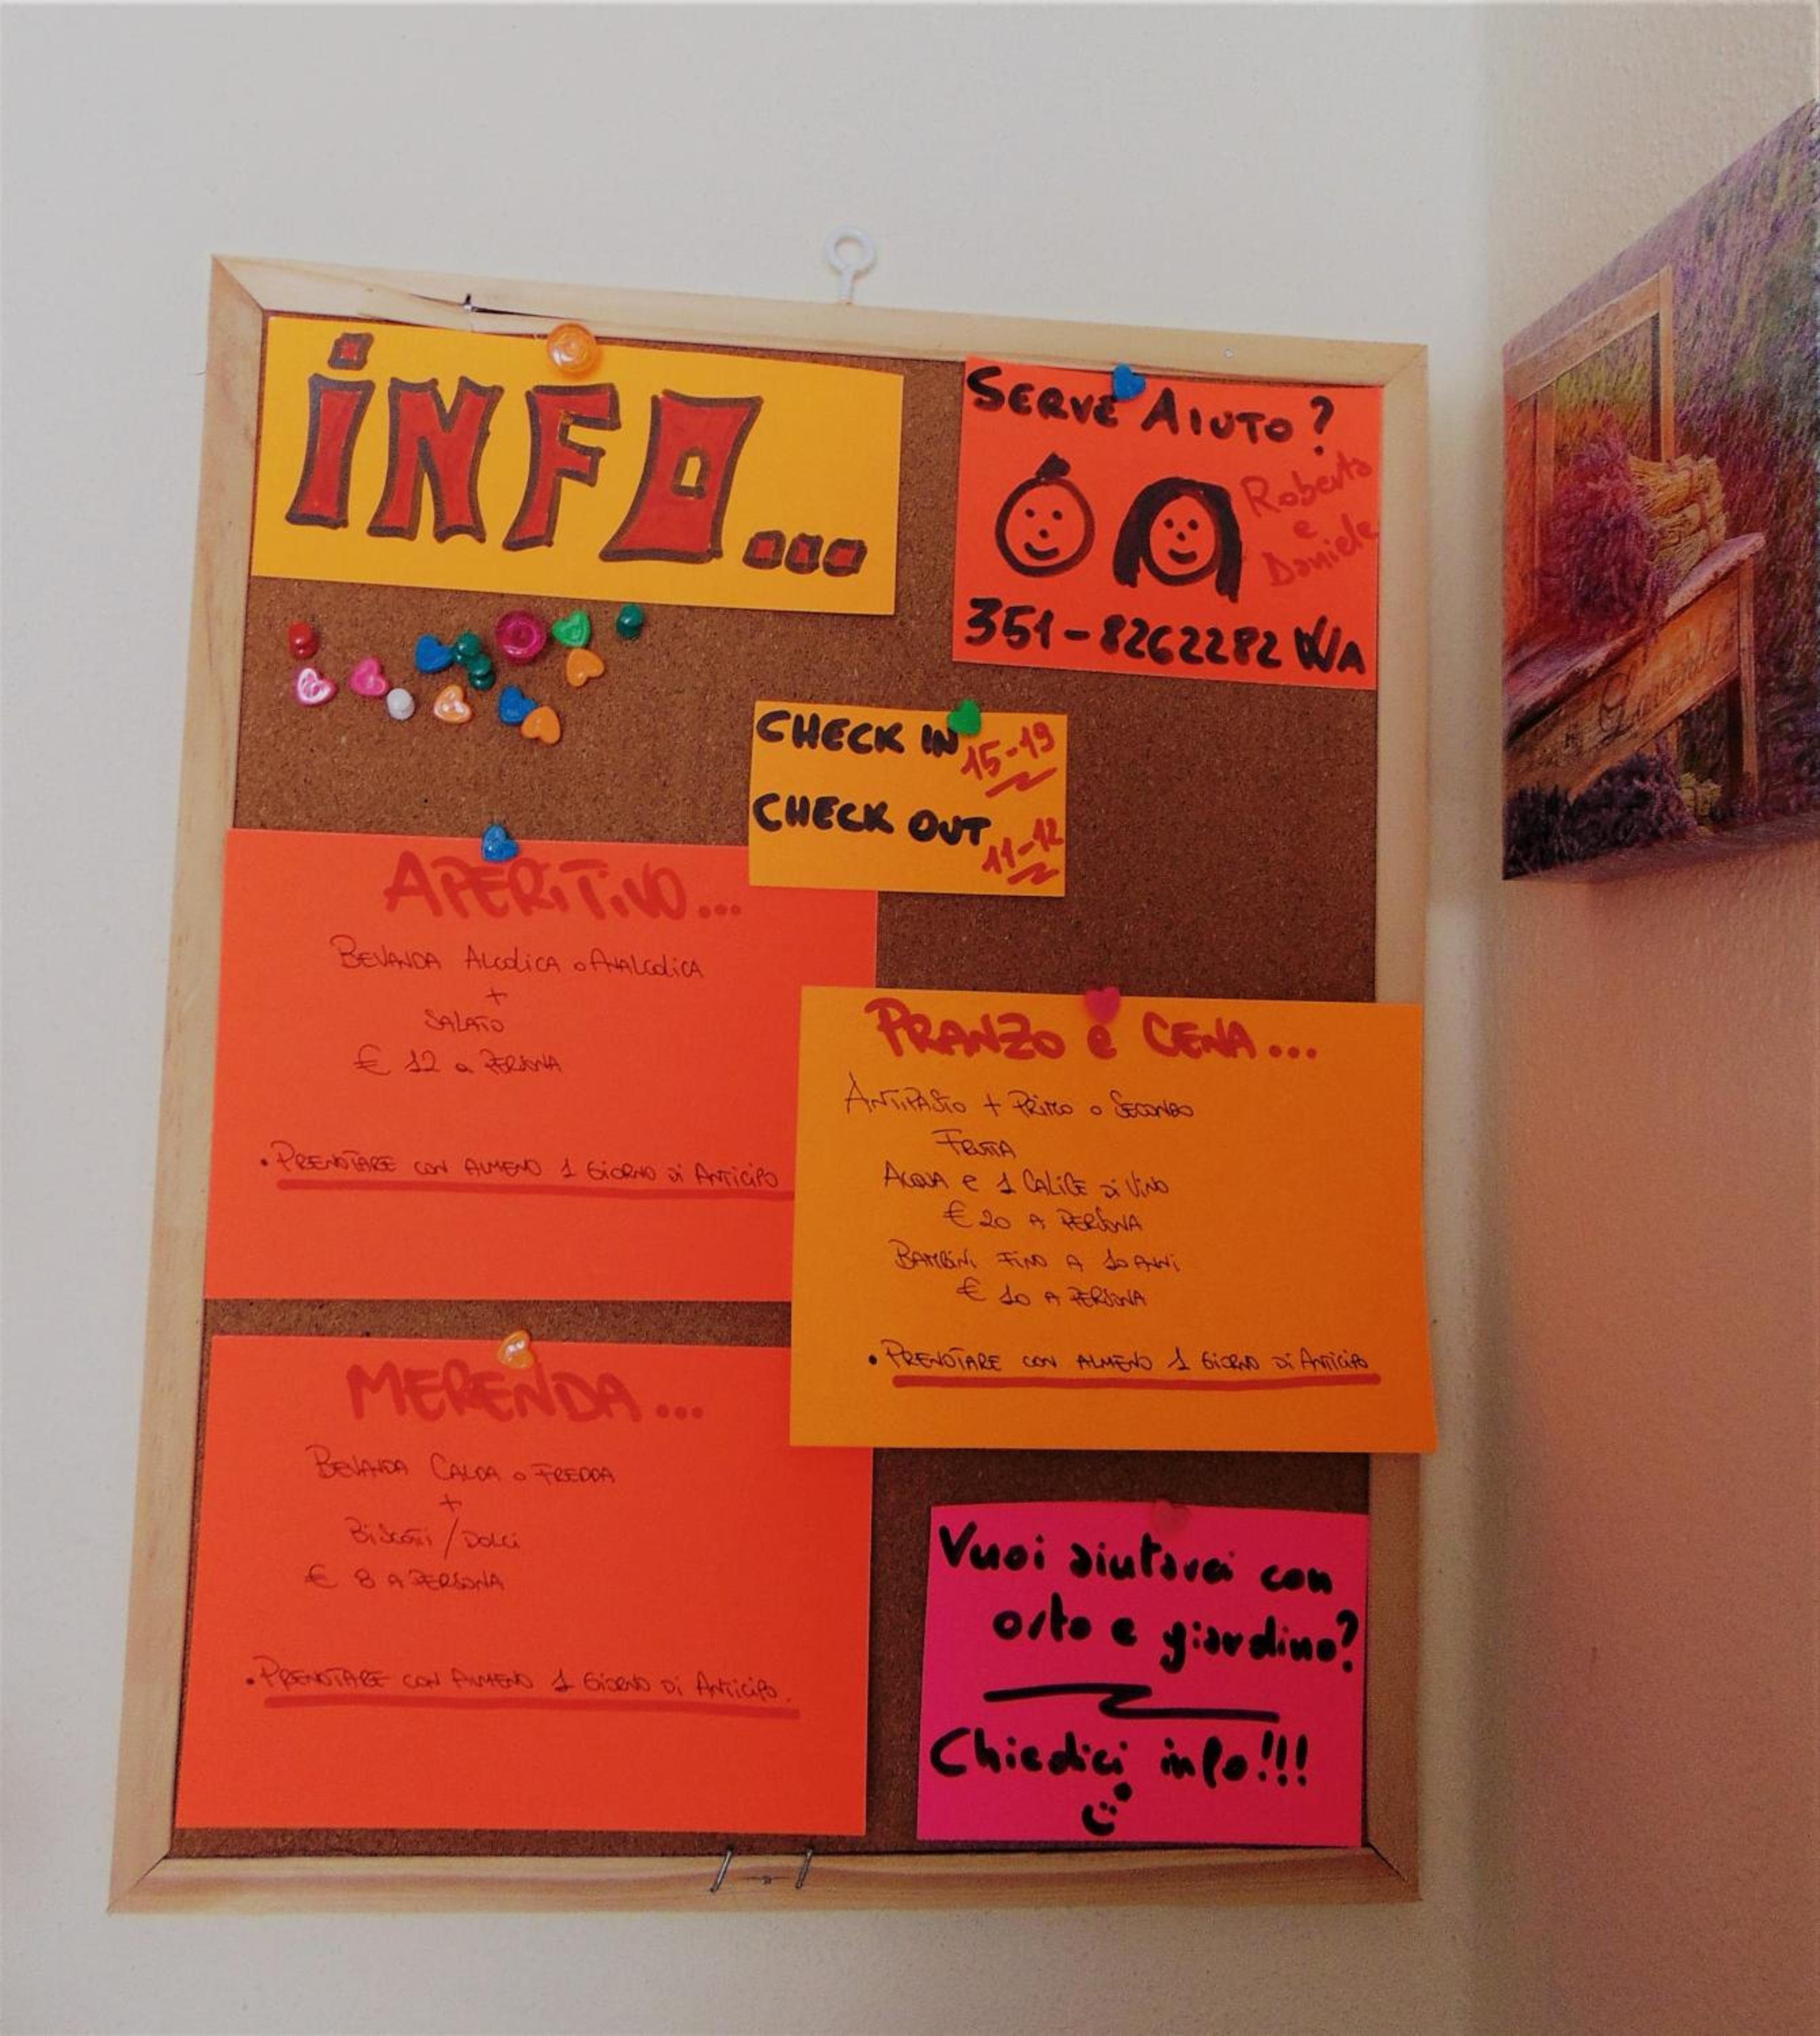 iNFO...
SERVE AIUTO?
Roberto
e
Daniele
351-8262282 WA
CHECK IN 15-19
CHECK OUT 11-12
APERiTiVO...
BEVANDA ALCOLICA o ANALCOLICA
+
SALATO
€ 12 a PERSONA
• PRENOTARE CON ALMENO 1 GIORNO Di ANTICIPO
PRANZO e CENA...
ANTIPASTO + PRIMO o SECONDO
FRUTTA
ACQUA e 1 CALICE Di ViNO
€ 20 A PERSONA
BAMBiNi FiNO A 10 ANNi
€ 10 A PERSONA
• PRENOTARE CON ALMENO 1 GIORNO Di ANTICIPO
MERENDA...
BEVANDA CALDA o FREDDA
+
BiSCOTTi / DOLCi
€ 8 A PERSONA
• PRENOTARE CON ALMENO 1 GIORNO Di ANTICIPO.
Vuoi aiutarci con
orto e giardino?
Chiedici info!!!